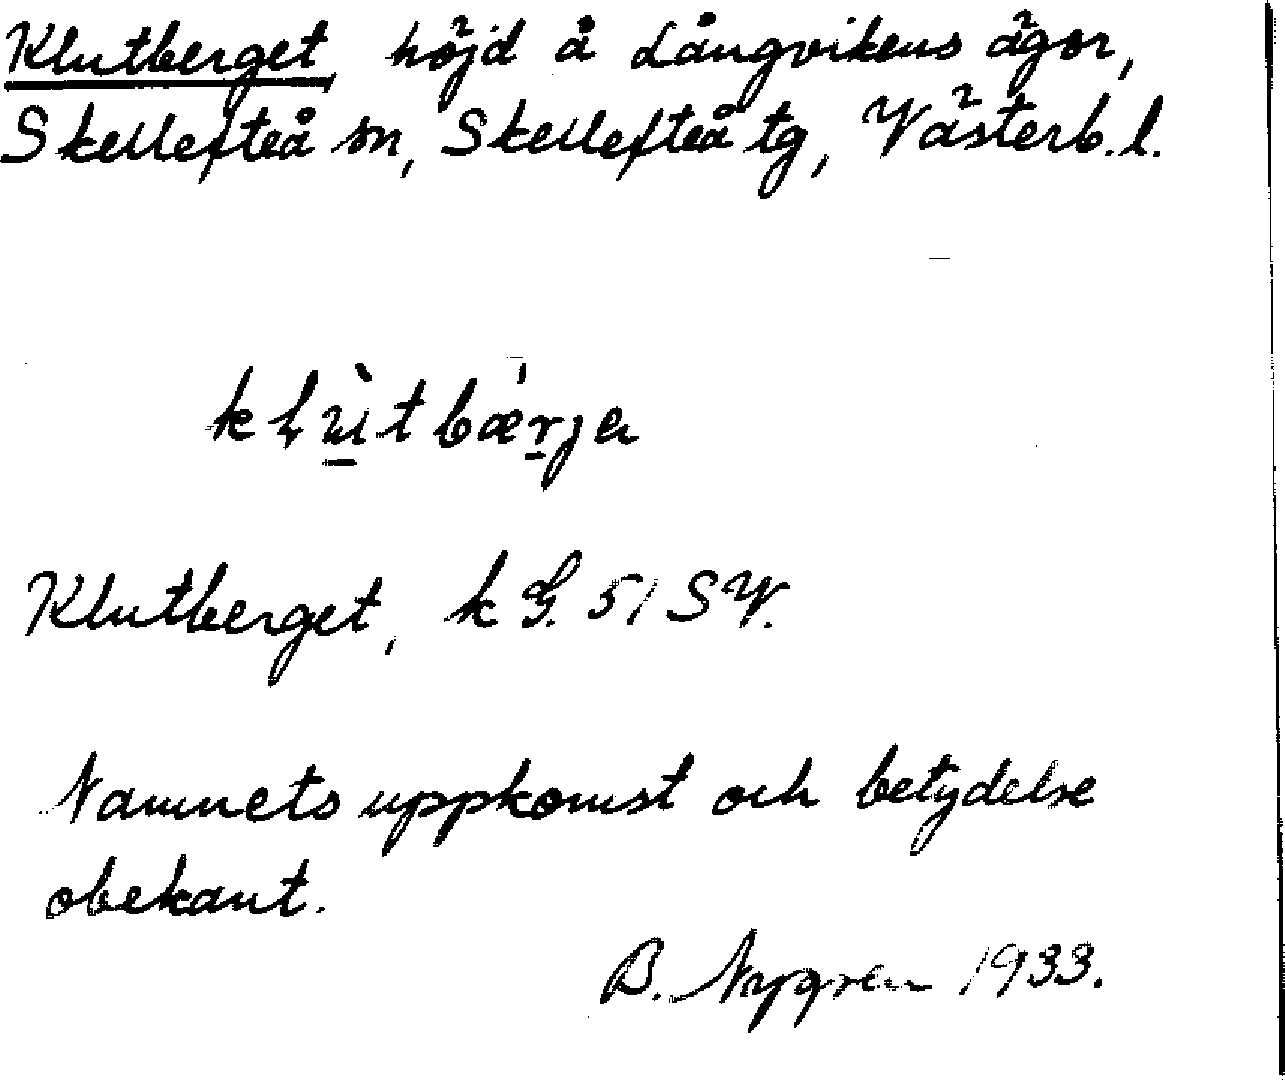 Klutberget, höjd å Långvikens ägor,
Skellefteå sn, Skellefteå tg, Västerb. l.
klù̱tbæ̍ṟja
Klutberget, k G. 51 SW.
Namnets uppkomst och betydelse
obekant.
B. Nygren 1933.